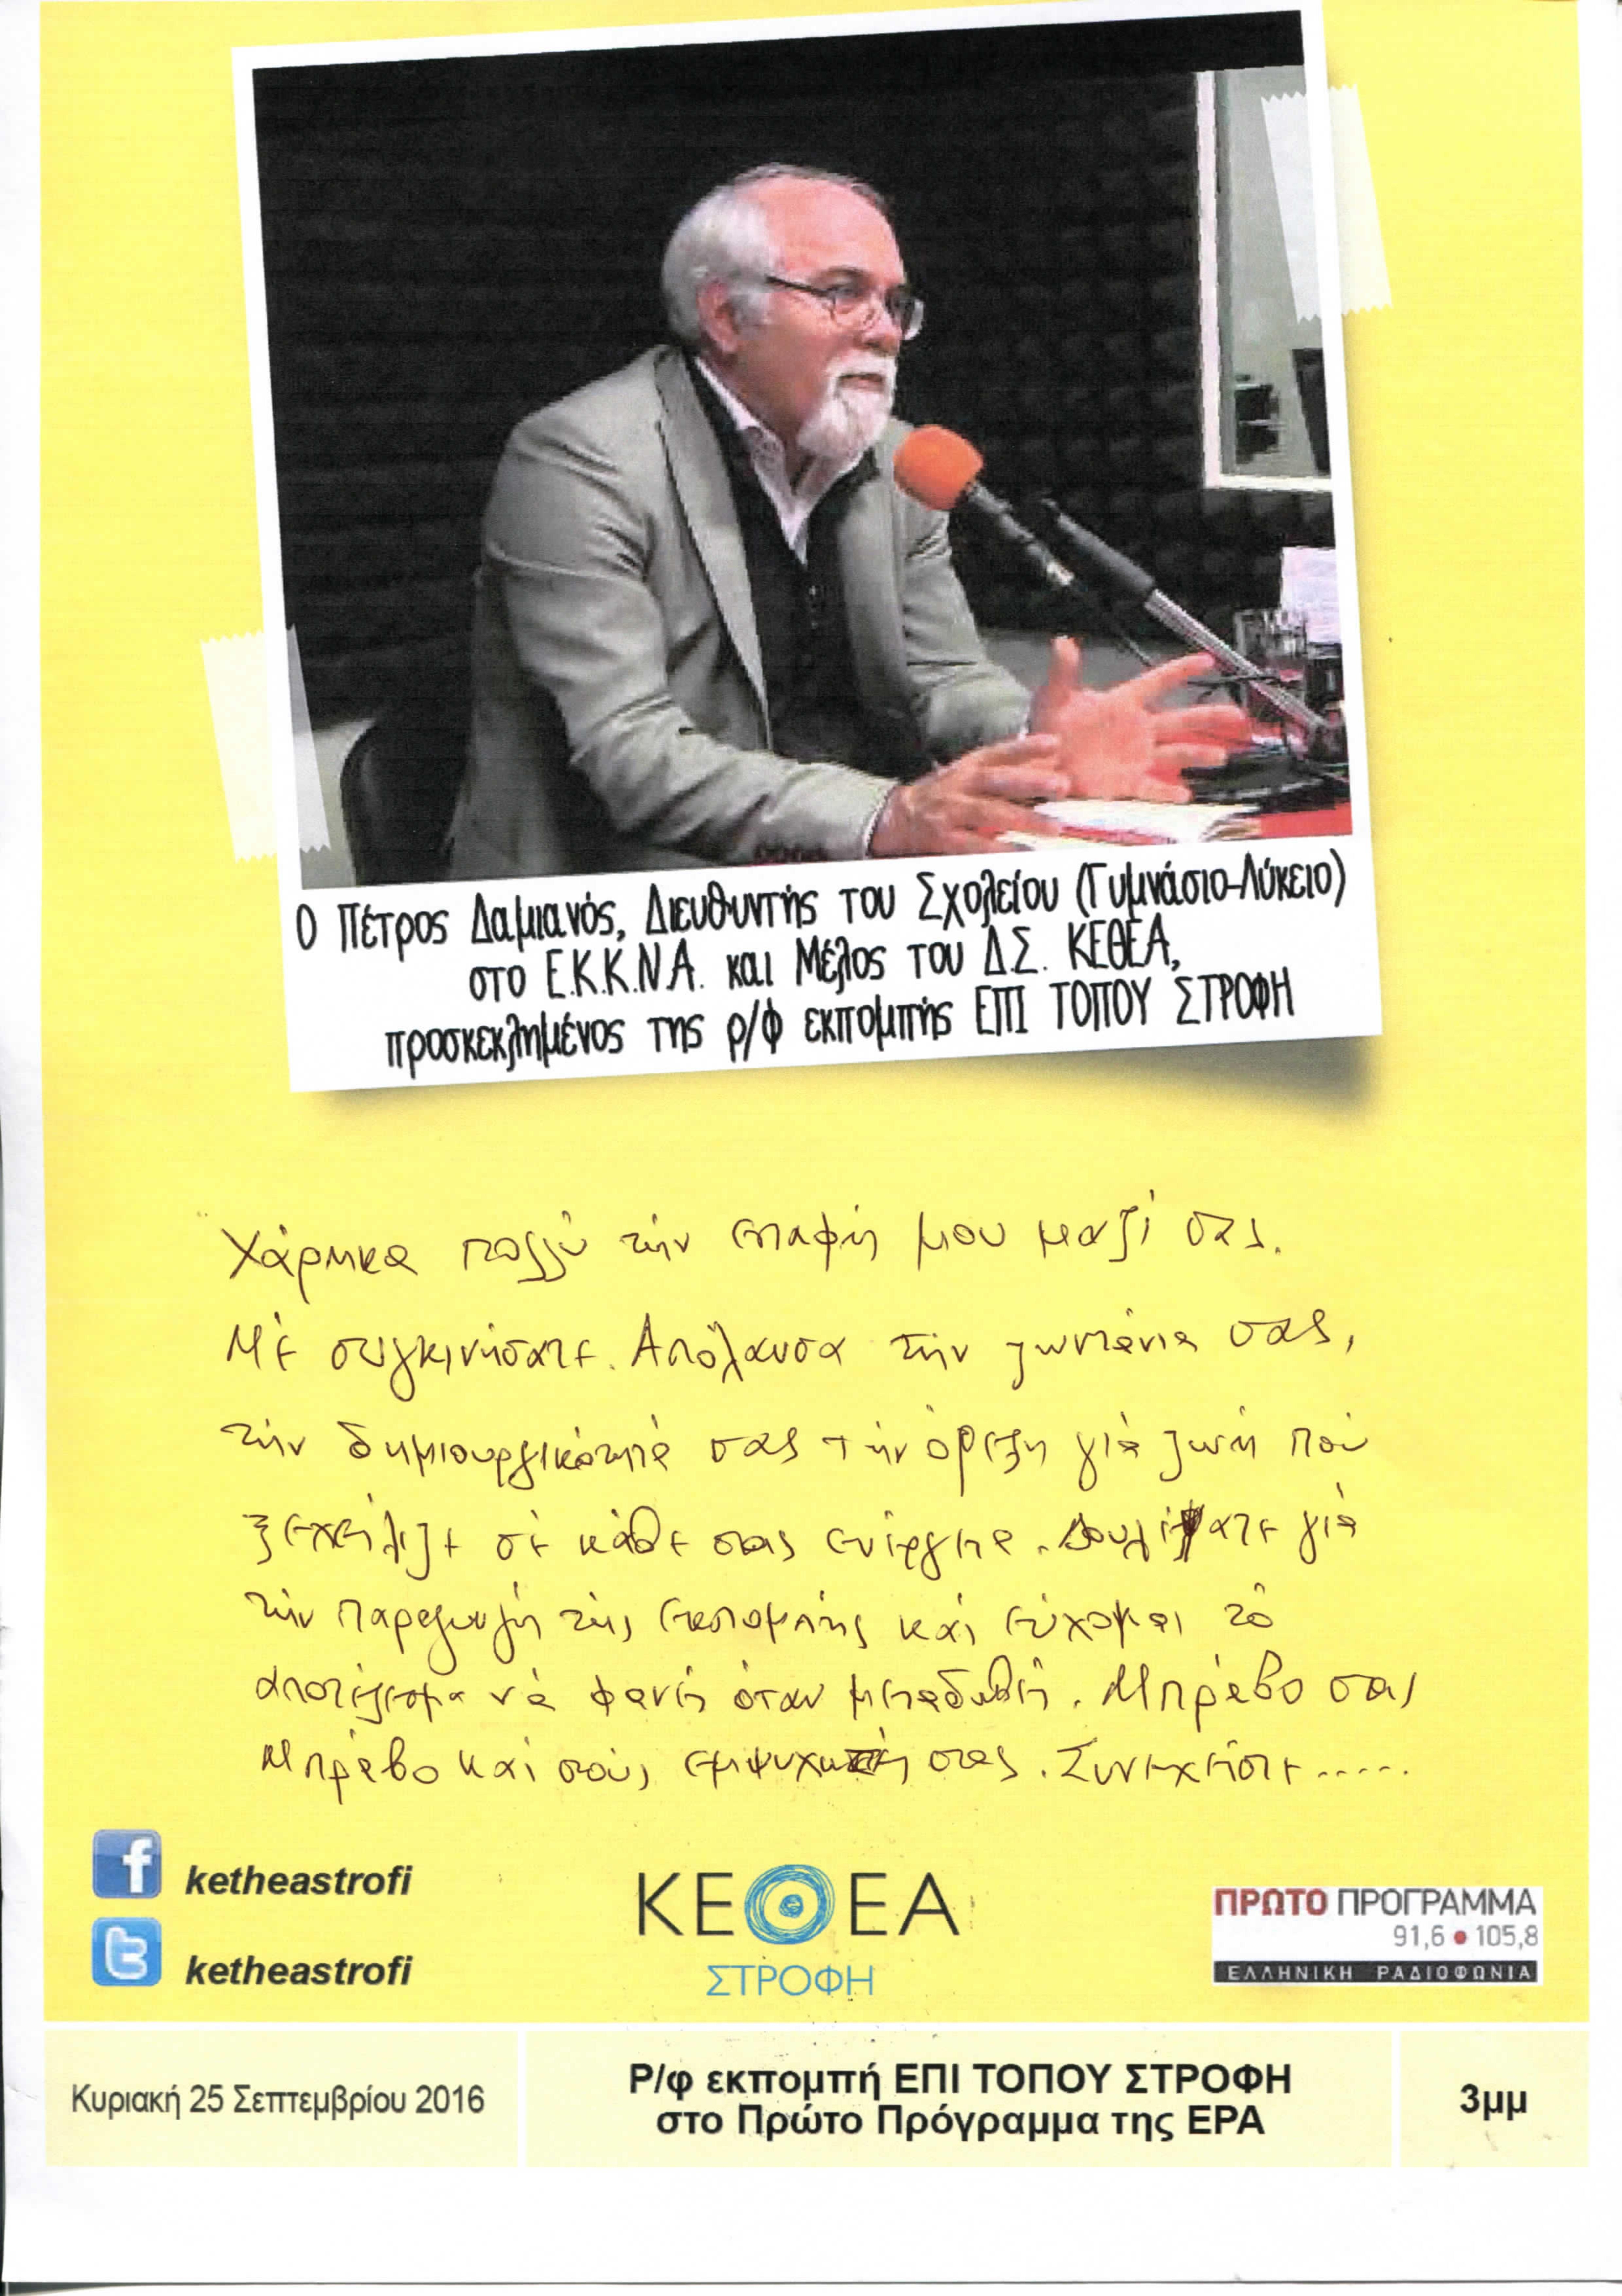 Ο Πέτρος Δαμιανός, Διευθυντής του Σχολείου (Γυμνάσιο-Λύκειο)
στο Ε.Κ.Κ.Ν.Α. και Μέλος του Δ.Σ. ΚΕΘΕΑ,
προσκεκλημένος της ρ/φ εκπομπής ΕΠΙ ΤΟΠΟΥ ΣΤΡΟΦΗ
Χάρηκα πολλύ τήν επαφή μου μαζί σας.
Μέ συγκινήσατε. Απόλαυσα τήν ζωντάνια σας,
τήν δημιουργικότητά σας τήν όρεξη γιά ζωή πού
ξεχείλιζε σέ κάθε σας ενέργεια. Δουλέψατε γιά
τήν παραγωγή τής εκπομπής καί εύχομαι τό
αποτέλεσμα νά φανεί όταν μεταδωθεί. Μπράβο σας
Μπράβο καί στούς εμψυχωτές σας. Συνεχείστε.....
ketheastrofi
ketheastrofi
ΚΕΘΕΑ
ΣΤΡΟΦΗ
ΠΡΩΤΟ ΠΡΟΓΡΑΜΜΑ
91,6 • 105,8
ΕΛΛΗΝΙΚΗ ΡΑΔΙΟΦΩΝΙΑ
Κυριακή 25 Σεπτεμβρίου 2016
Ρ/φ εκπομπή ΕΠΙ ΤΟΠΟΥ ΣΤΡΟΦΗ
στο Πρώτο Πρόγραμμα της ΕΡΑ
3μμ